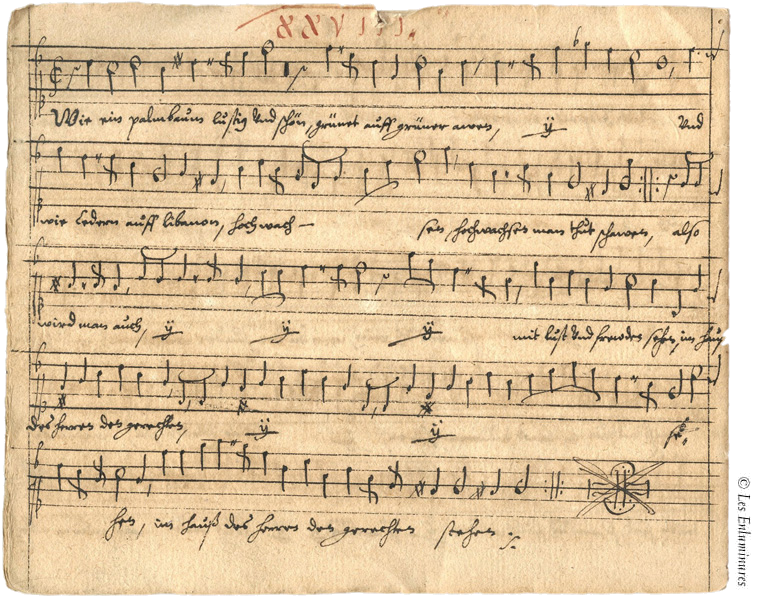 XXVIII.
Wie ein palmbaum lustig Und schön, grünet auff grüner awen, ij Und
wie Cedern auff libanon, hoch wach- sen hochwachsen man thut schawen, also
wird man auch, ij ij ij mit lust Und frewden sehen, im hauß
des herren den gerechten, ij ij ste-
hen, im hauß des herren den gerechten stehen.
© Les Enluminures